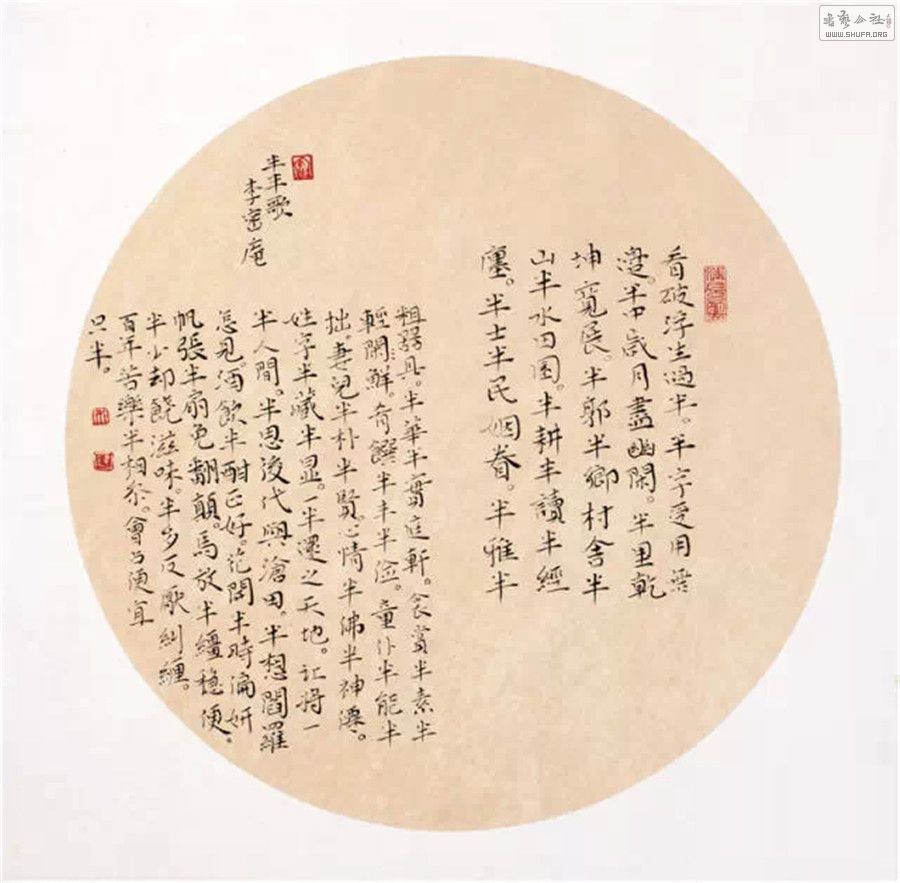 看破浮生過半。半字受用無
邊。半中歲月盡幽閑。半里乾
坤寬展。半郭半鄉村舍半
山半水田園。半耕半讀半經
廛。半士半民姻眷。半雅半
粗器具。半華半實庭軒。衾裳半素半
輕鮮。肴饌半丰半儉。童仆半能半
拙妻兒半朴半賢。心情半佛半神僊。
姓字半藏半显。一半還之天地。让將一
半人間。半思後代與滄田。半想閻羅
怎見。酒飲半酣正好。花開半時偏妍
帆張半扇免翻顛。馬放半繮穩便。
半少却饒滋味。半多反厭糾纏。
百年苦樂半相參。會占便宜
只半。
半半歌
李密庵
WWW.SHUFA.ORG